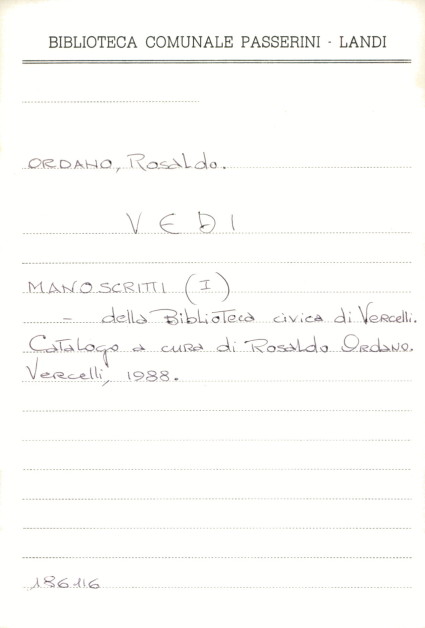 BIBLIOTECA COMUNALE PASSERINI - LANDI
ORDANO, Rosaldo.
VEDI
MANOSCRITTI (I)
- della Biblioteca civica di Vercelli.
Catalogo a cura di Rosaldo Ordano.
Vercelli, 1988.
186116